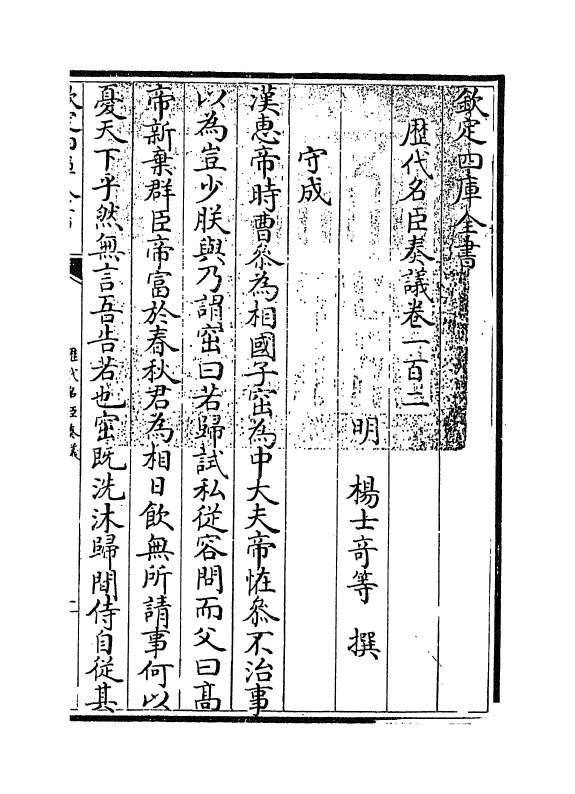 欽定四庫全書
歴代名臣奏議卷一百二
明 楊士竒等 撰
守成
漢惠帝時曹叅為相國子窋為中大夫帝恠叅不治事
以為豈少朕與乃謂窋曰若歸試私從容問而父曰髙
帝新棄群臣帝富於春秋君為相日飲無所請事何以
憂天下乎然無言吾告若也窋既洗沐歸間侍自從其
欽定四庫全書
歴代名臣奏議